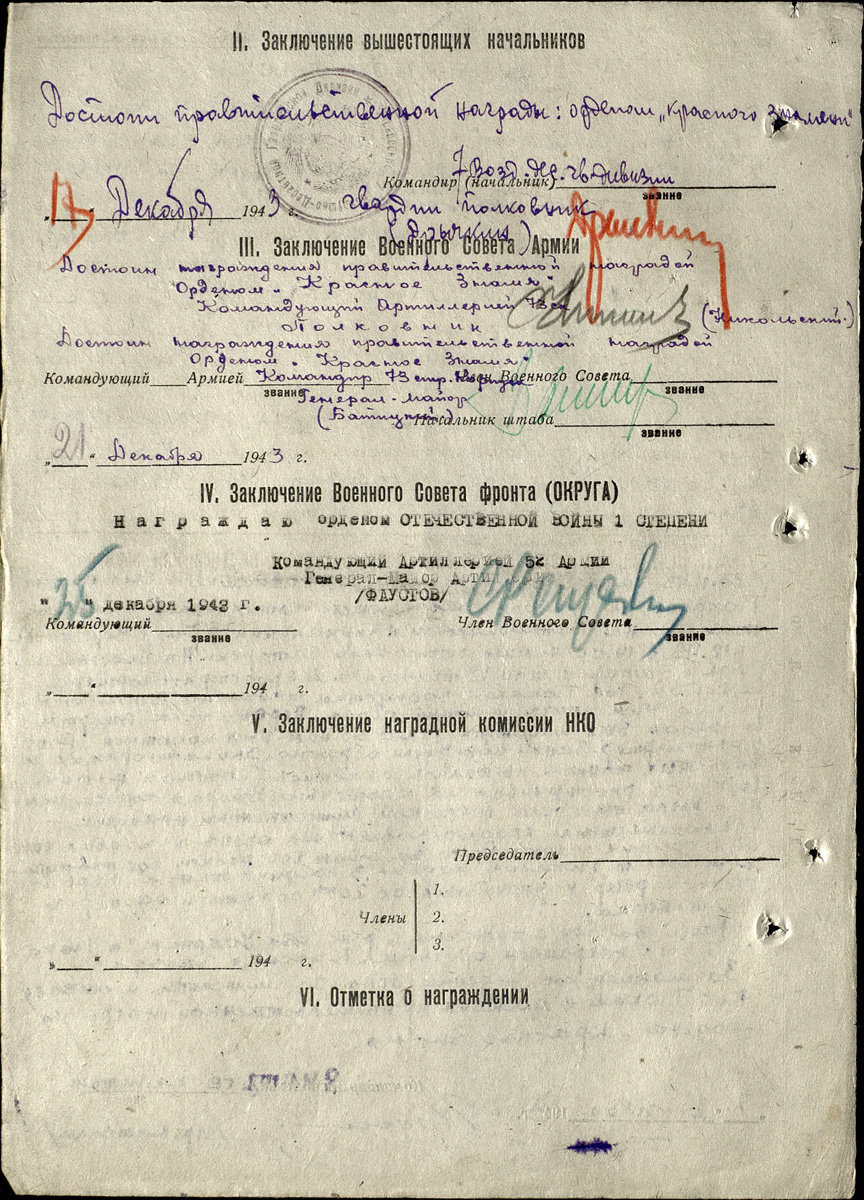 II. Заключение вышестоящих начальников
Достоин правительственной награды: орденом „Красного Знамени"
Командир (начальник) 7 Возд. дес. гв. дивизии
звание
„17" Декабря 1943 г. гвардии полковник
(Дрычкин)
III. Заключение Военного Совета Армии
Достоин награждения правительственной наградой
Орденом „Красное Знамя"
Командующий Артиллерией 73 ск
Полковник (Никольский.)
Достоин награждения правительственной наградой
Орденом „Красное Знамя"
Командующий Армией Командир 73 стр. Корпуса Член Военного Совета
звание Генерал-майор звание
(Батицкий) Начальник штаба
звание
„21" Декабря 1943 г.
IV. Заключение Военного Совета фронта (ОКРУГА)
Награждаю орденом ОТЕЧЕСТВЕННОЙ ВОЙНЫ 1 СТЕПЕНИ
Командующий Артиллерией 52 Армии
Генерал-Майор Артиллерии
"25" декабря 1943 г. /ФАУСТОВ/
Командующий Член Военного Совета
звание звание
„ " 194 г.
V. Заключение наградной комиссии НКО
Председатель
1.
Члены 2.
3.
„ " 194 г.
VI. Отметка о награждении